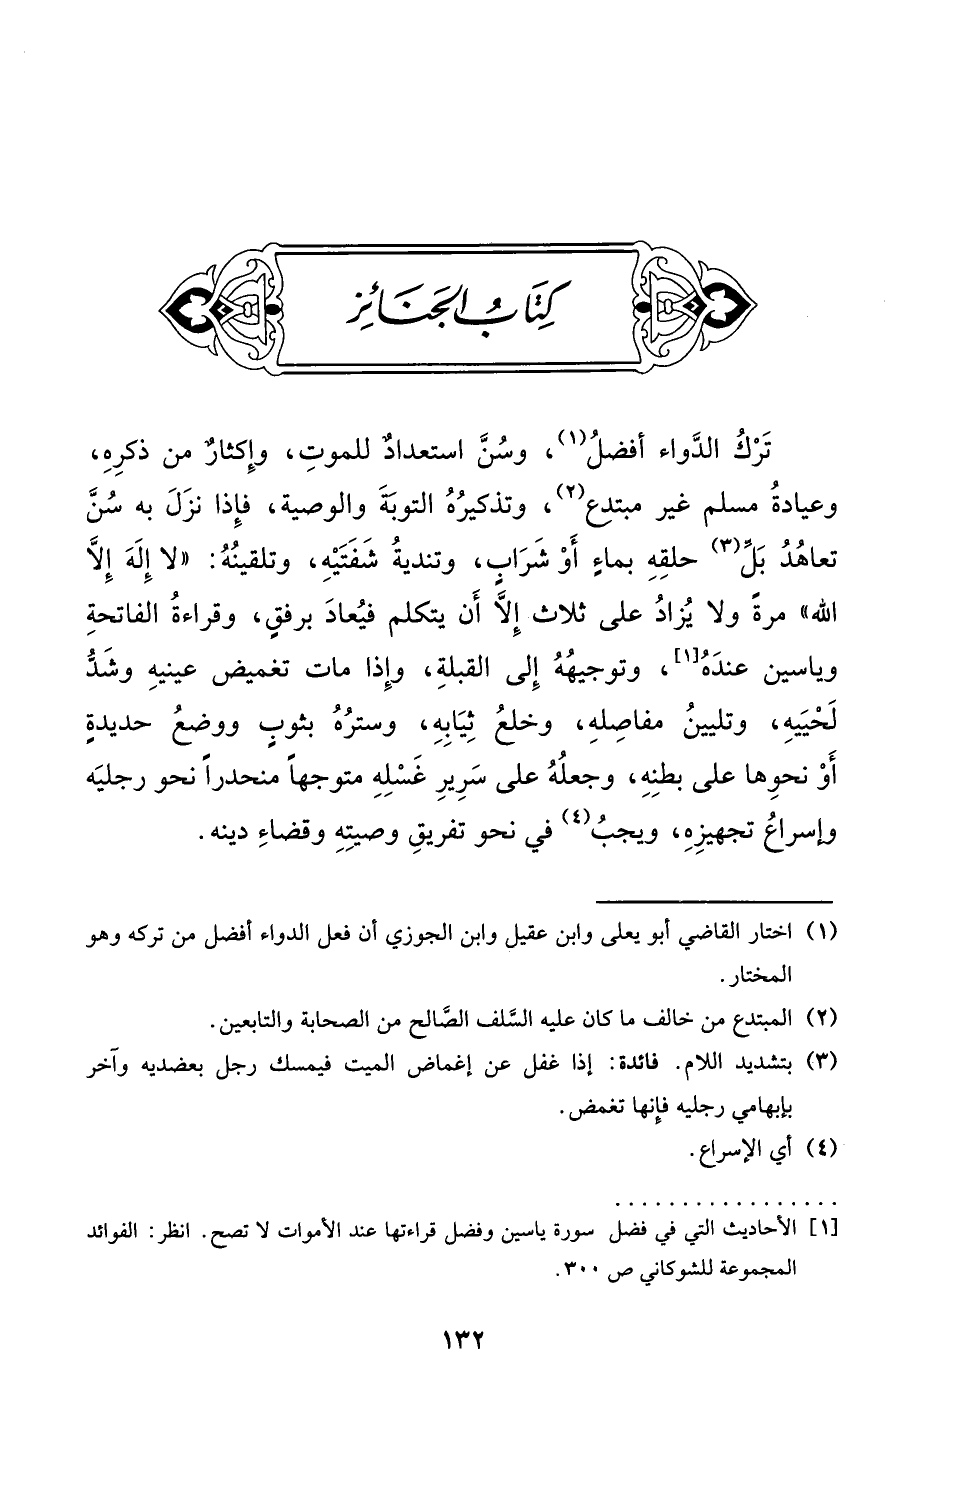 كِتَابُ الجَنَائِز
تَرْكُ الدَّواء أفضلُ(١)، وسُنَّ استعدادٌ للموتِ، وإكثارٌ من ذكرِهِ،
وعيادةُ مسلم غير مبتدع(٢)، وتذكيرُهُ التوبَةَ والوصية، فإذا نزَلَ به سُنَّ
تعاهُدُ بَلِّ(٣) حلقِهِ بماءٍ أَوْ شَرَابٍ، وتنديةُ شفَتَيْهِ، وتلقينُهُ: «لا إِلَهَ إِلَّا
الله» مرةً ولا يُزادُ على ثلاث إِلَّا أَن يتكلم فيُعادَ برفقٍ، وقراءةُ الفاتحةِ
وياسين عندَهُ[١]، وتوجيهُهُ إلى القبلةِ، وإذا مات تغميض عينيهِ وشَدُّ
لَحْيَيهِ، وتليينُ مفاصلهِ، وخلعُ ثِيَابِهِ، وسترُهُ بثوبٍ ووضعُ حديدةٍ
أَوْ نحوِها على بطنِهِ، وجعلُهُ على سَرِيرِ غَسْلِهِ متوجهاً منحدراً نحو رجليَه
وإسراعُ تجهيزِهِ، ويجبُ(٤) في نحو تفريقِ وصيتِهِ وقضاءِ دينه.
(١) اختار القاضي أبو يعلى وابن عقيل وابن الجوزي أن فعل الدواء أفضل من تركه وهو
المختار.
(٢) المبتدع من خالف ما كان عليه السَّلف الصَّالح من الصحابة والتابعين.
(٣) بتشديد اللام. فائدة: إذا غفل عن إغماض الميت فيمسك رجل بعضديه وآخر
بإبهامي رجليه فإنها تغمض.
(٤) أي الإسراع.
[١] الأحاديث التي في فضل سورة ياسين وفضل قراءتها عند الأموات لا تصح. انظر: الفوائد
المجموعة للشوكاني ص ٣٠٠.
١٣٢